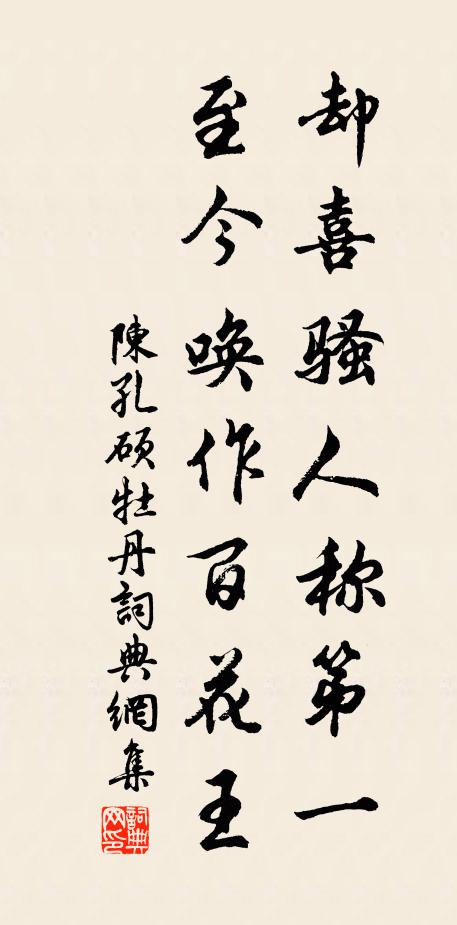 却喜骚人称第一
至今唤作百花王
陳孔硕牡丹詞典網集
詞典網印